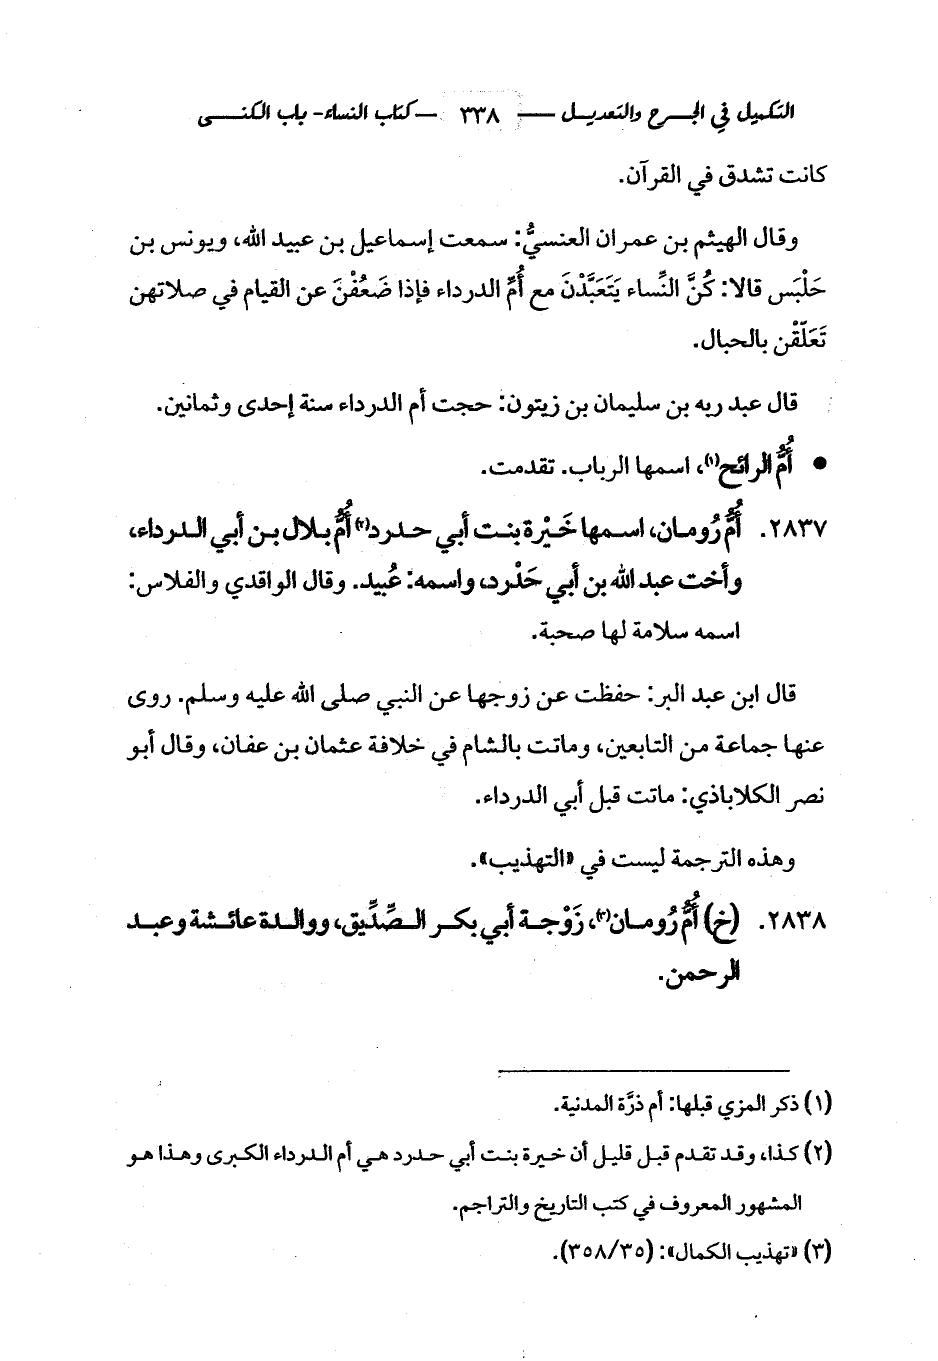 التكميل في الجرح والتعديل — ٣٣٨ — كتاب النساء- باب الكنى
كانت تشدق في القرآن.
وقال الهيثم بن عمران العنسيُّ: سمعت إسماعيل بن عبيد الله، ويونس بن
حَلْبَس قالا: كُنَّ النِّساء يَتَعَبَّدْنَ مع أُمِّ الدرداء فإذا ضَعُفْنَ عن القيام في صلاتهن
تَعَلَّقْن بالحبال.
قال عبد ربه بن سليمان بن زيتون: حجت أم الدرداء سنة إحدى وثمانين.
● أُمُّ الرائح(١)، اسمها الرباب. تقدمت.
٢٨٣٧. أُمُّ رُومان، اسمها خَيْرة بنت أبي حدرد(٢) أُمُّ بلال بن أبي الدرداء،
وأخت عبد الله بن أبي حَدْرد، واسمه: عُبيد. وقال الواقدي والفلاس:
اسمه سلامة لها صحبة.
قال ابن عبد البر: حفظت عن زوجها عن النبي صلى الله عليه وسلم. روى
عنها جماعة من التابعين، وماتت بالشام في خلافة عثمان بن عفان، وقال أبو
نصر الكلاباذي: ماتت قبل أبي الدرداء.
وهذه الترجمة ليست في «التهذيب».
٢٨٣٨. (خ) أُمُّ رُومان(٣)، زَوْجة أبي بكر الصِّدِّيق، ووالدة عائشة وعبد
الرحمن.
(١) ذكر المزي قبلها: أم ذرَّة المدنية.
(٢) كذا، وقد تقدم قبل قليل أن خيرة بنت أبي حدرد هي أم الدرداء الكبرى وهذا هو
المشهور المعروف في كتب التاريخ والتراجم.
(٣) «تهذيب الكمال»: (٣٥٨/٣٥).